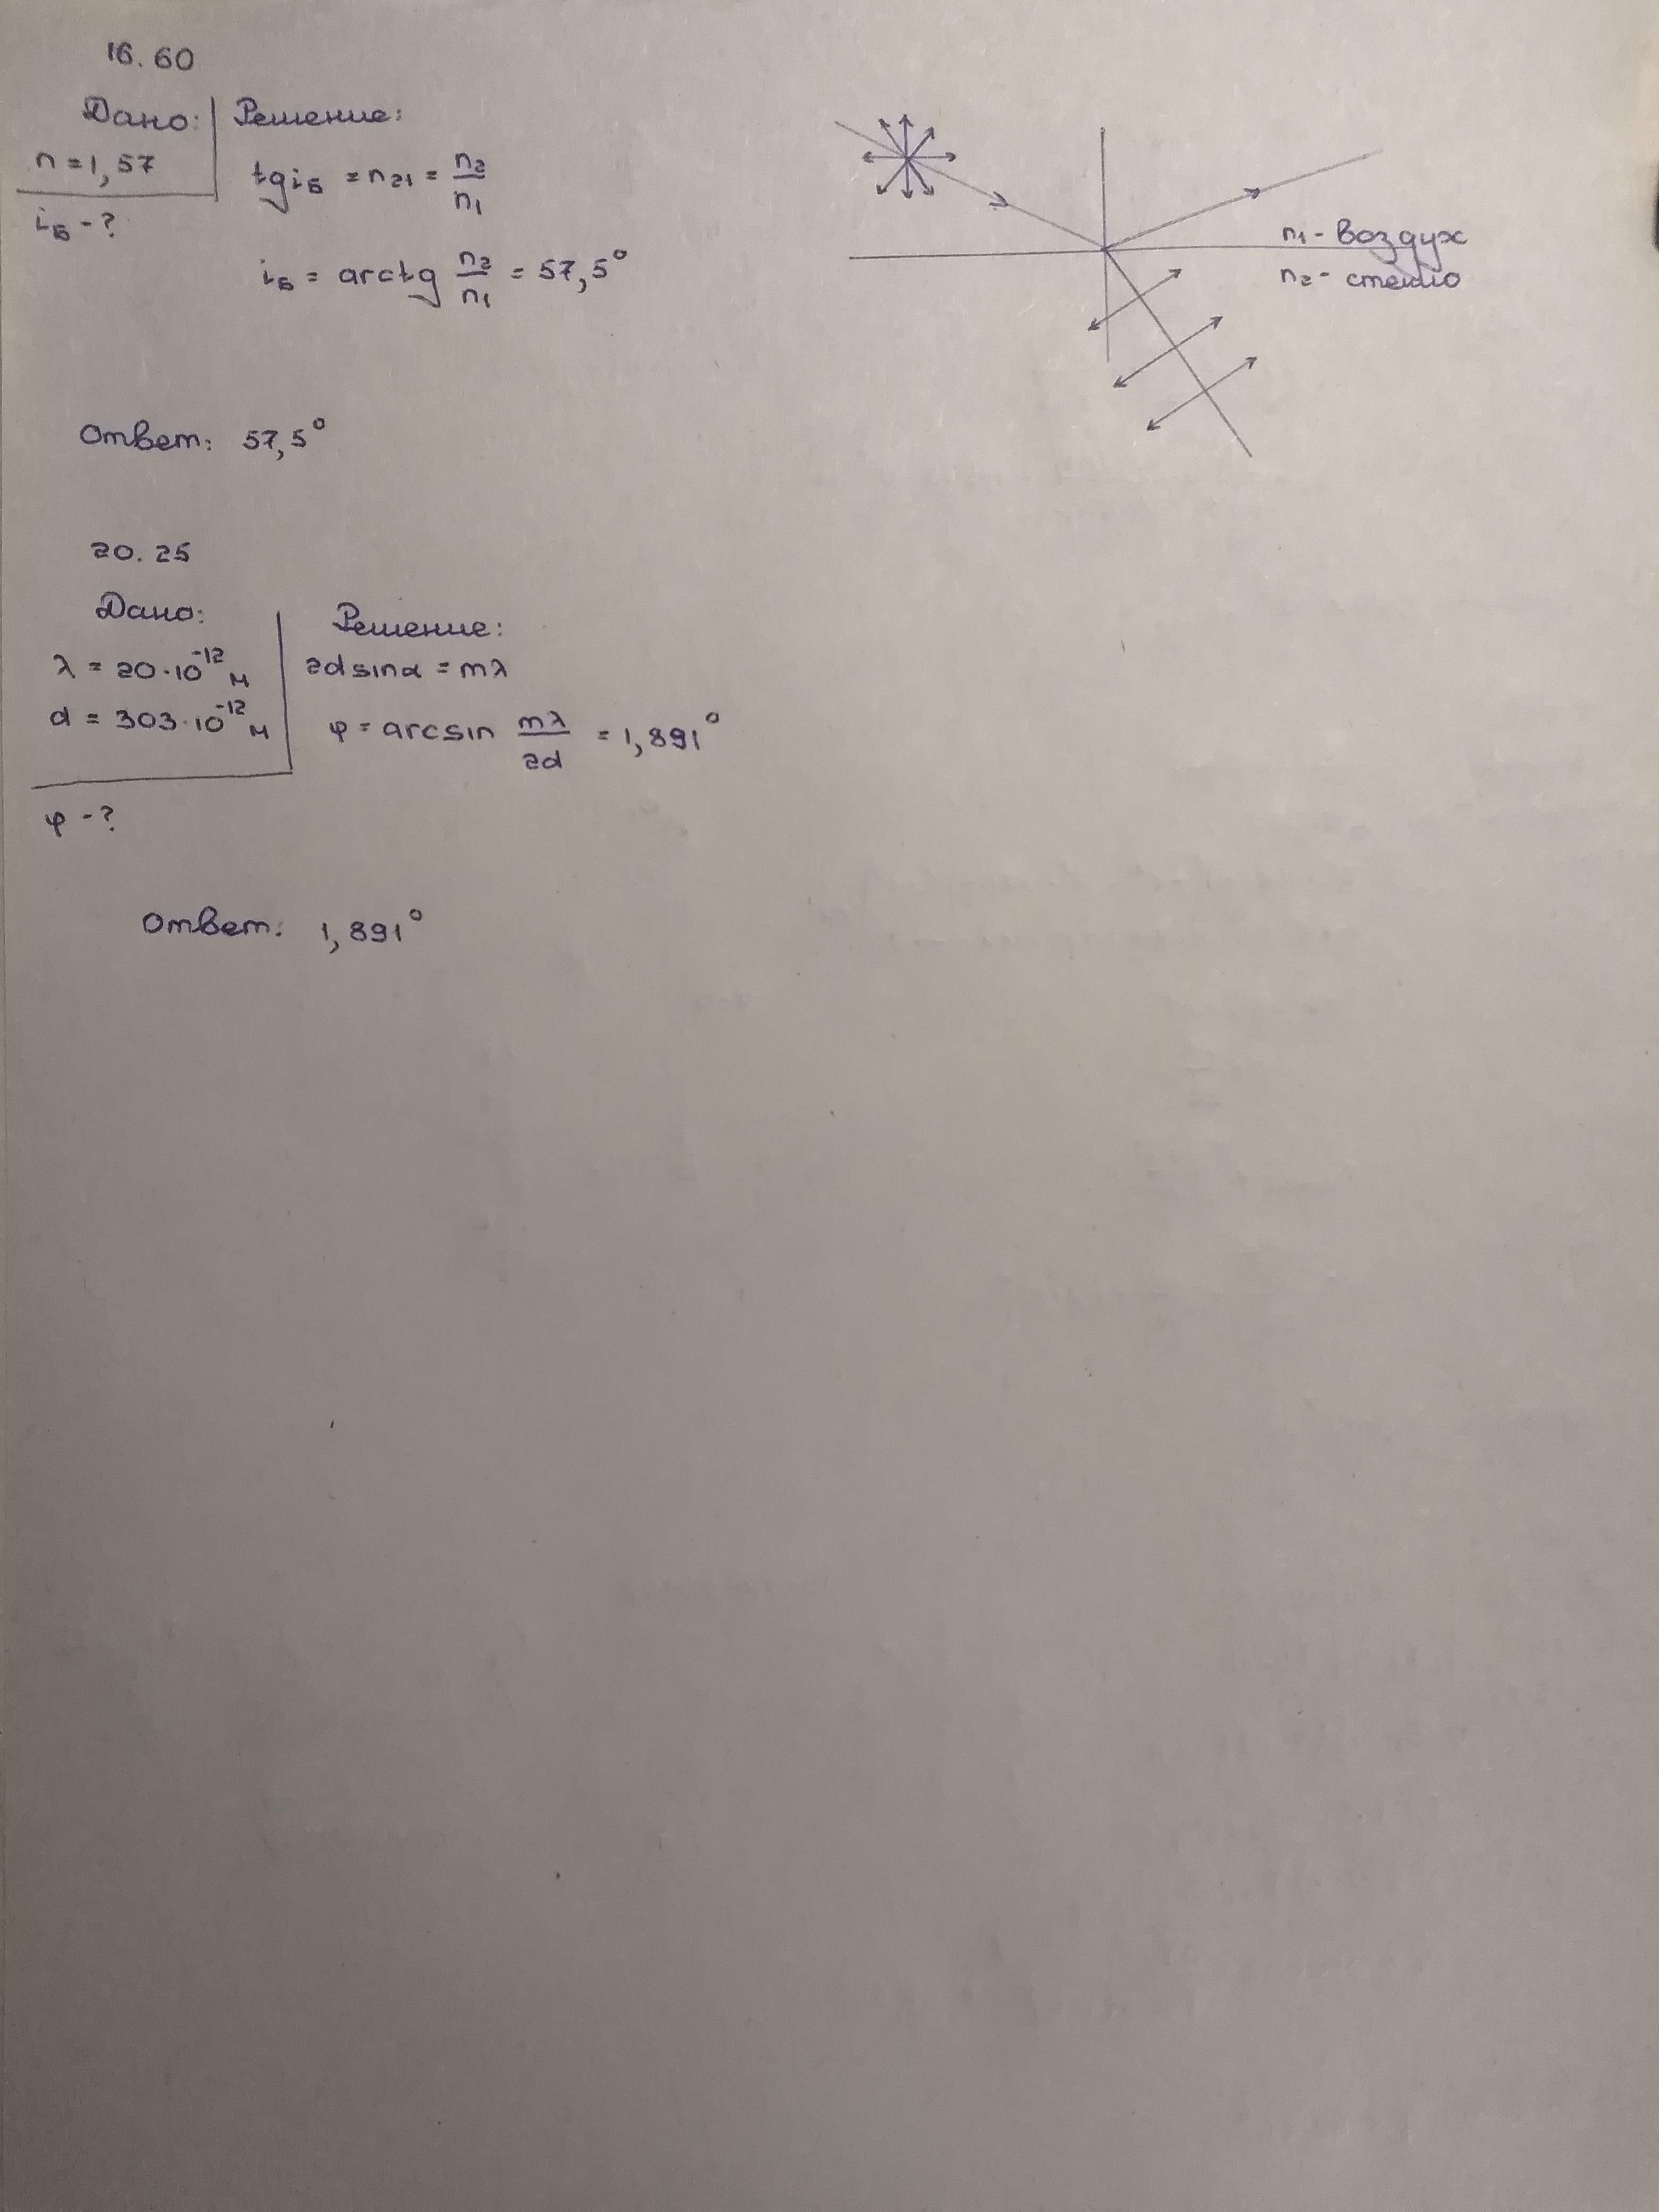 16.60
Дано:
n = 1,57
i_Б - ?
Решение:
tg i_Б = n₂₁ = n₂/n₁
i_Б = arctg n₂/n₁ = 57,5°
n₁ - воздух
n₂ - стекло
Ответ: 57,5°
20.25
Дано:
λ = 20·10⁻¹² м
d = 303·10⁻¹² м
φ - ?
Решение:
2d sinα = mλ
φ = arcsin mλ/2d = 1,891°
Ответ: 1,891°